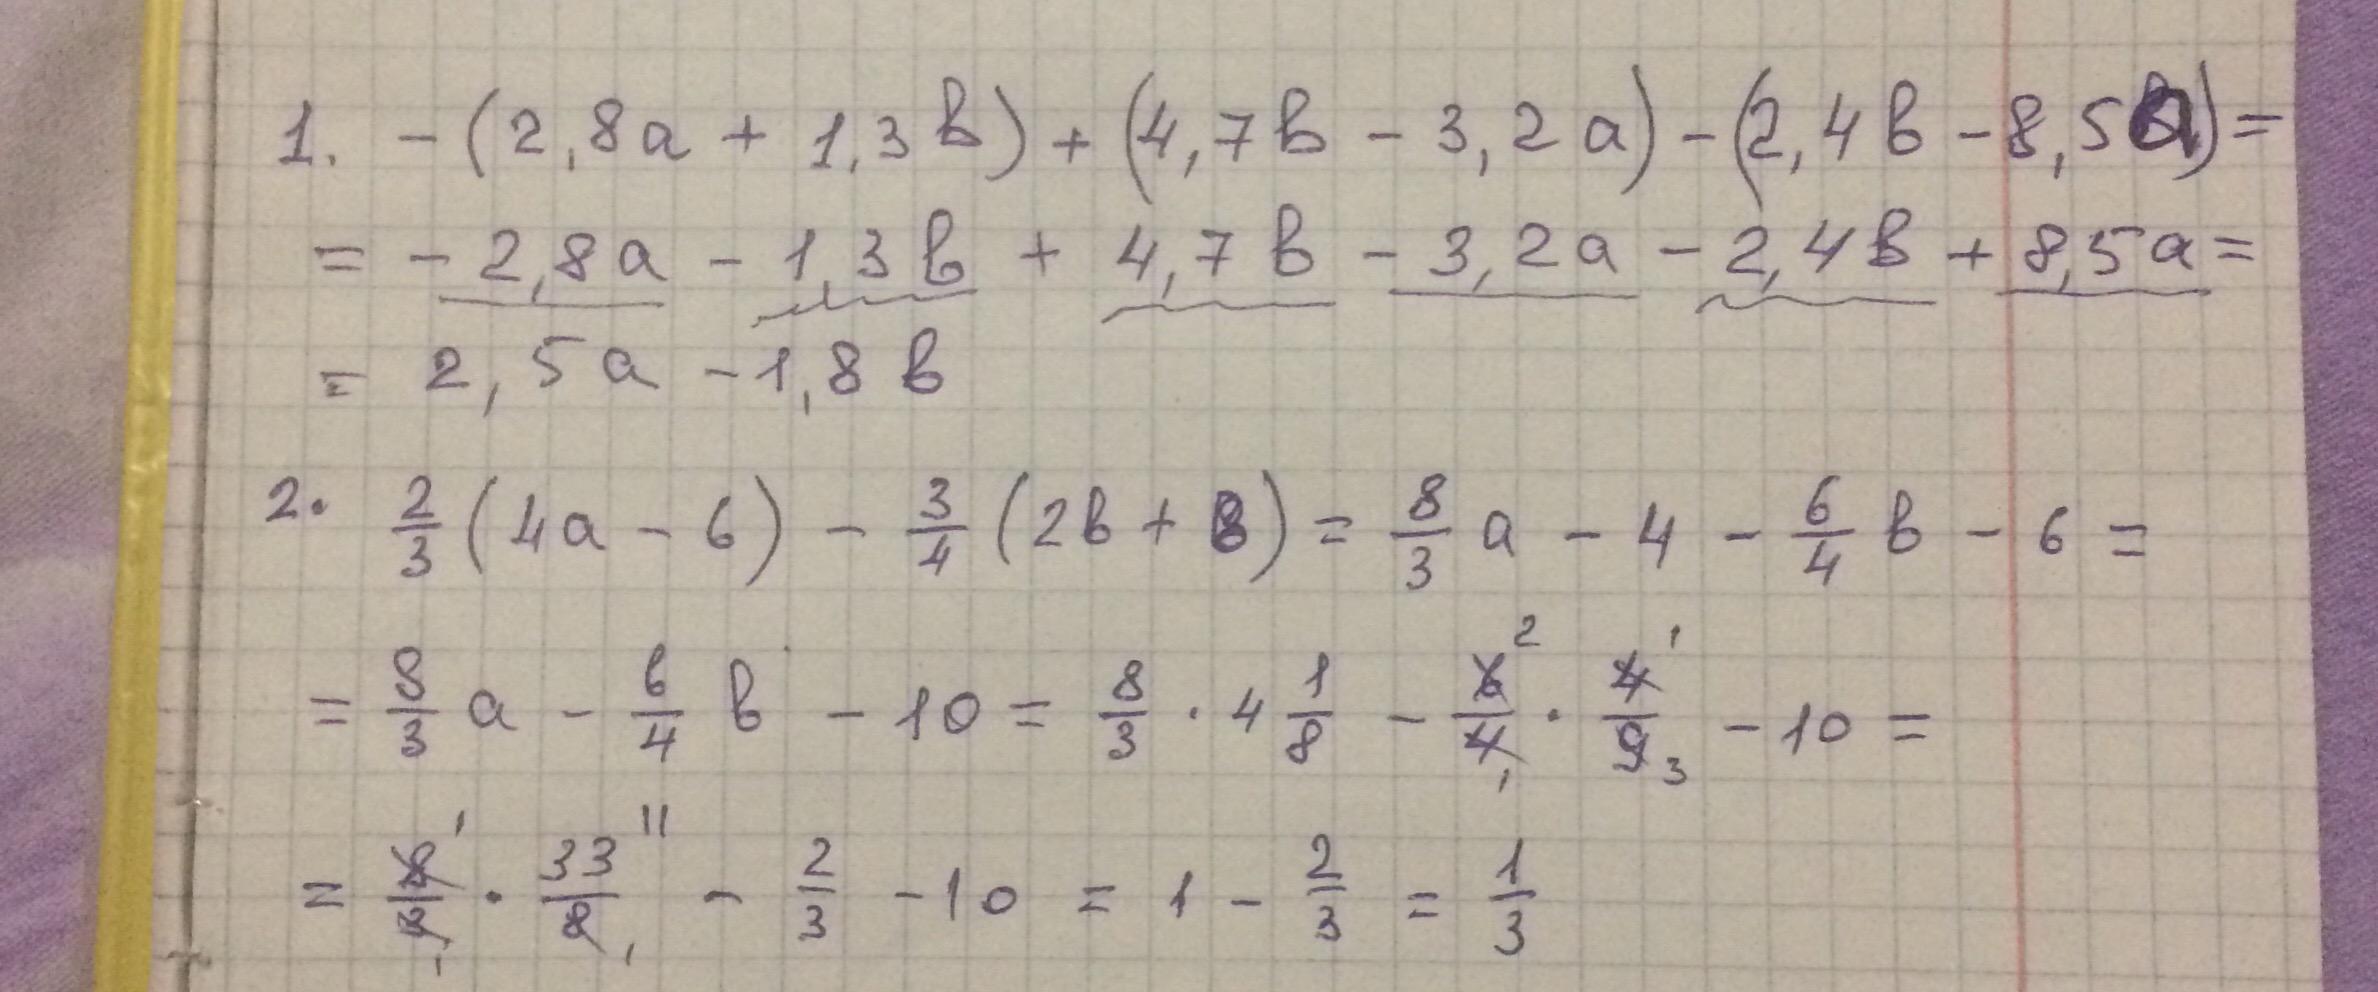 1. -(2,8a + 1,3b) + (4,7b - 3,2a) - (2,4b - 8,5a) =
= -2,8a - 1,3b + 4,7b - 3,2a - 2,4b + 8,5a =
= 2,5a - 1,8b
2. 2/3 (4a - 6) - 3/4 (2b + 8) = 8/3 a - 4 - 6/4 b - 6 =
= 8/3 a - 6/4 b - 10 = 8/3 · 4 1/8 - 6/4 · 4/9 - 10 =
= 8/3 · 33/8 - 2/3 - 10 = 1 - 2/3 = 1/3